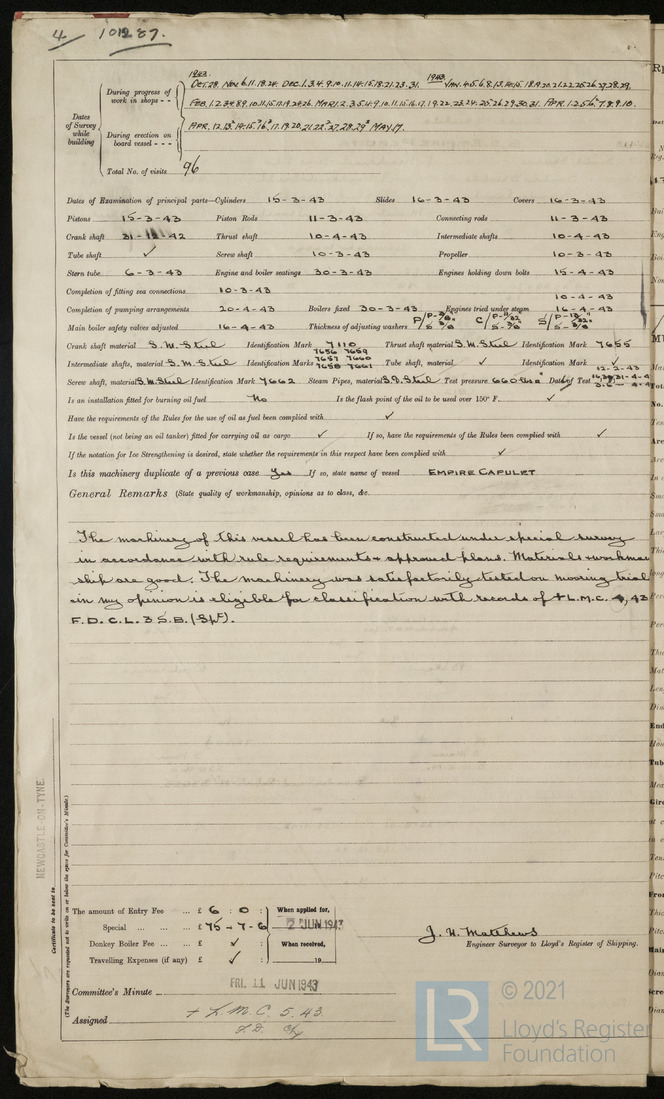 4 / 101287.
1942. 1943.
During progress of work in shops - - Oct. 28, Nov. 6. 11. 18. 24. Dec. 1. 3. 4. 9. 10. 11. 14. 15. 18. 21. 23. 31. Jan. 4. 5. 6. 8. 13. 14. 15. 18. 19. 20. 21. 22. 25. 26. 27. 28. 29.
Feb. 1. 2. 3. 4. 8. 9. 10. 11. 15. 17. 19. 24. 26. Mar. 1. 2. 3. 5. 4. 9. 10. 11. 15. 16. 17. 19. 22. 23. 24. 25. 26. 29. 30. 31. Apr. 1. 2. 5. 6. 7. 8. 9. 10.
Dates of Survey while building
During erection on board vessel - - - Apr. 12. 13. 14. 15. 16. 17. 19. 20. 21. 22. 27. 28. 29. May. 17.
Total No. of visits 96
Dates of Examination of principal parts—Cylinders 15-3-43 Slides 16-3-43 Covers 16-3-43
Pistons 15-3-43 Piston Rods 11-3-43 Connecting rods 11-3-43
Crank shaft 31-12-42 Thrust shaft 10-4-43 Intermediate shafts 10-4-43
Tube shaft ✓ Screw shaft 10-3-43 Propeller 10-3-43
Stern tube 6-3-43 Engine and boiler seatings 30-3-43 Engines holding down bolts 15-4-43
Completion of fitting sea connections 10-3-43
10-4-43
Completion of pumping arrangements 20-4-43 Boilers fixed 30-3-43 Engines tried under steam 16-4-43
Main boiler safety valves adjusted 16-4-43 Thickness of adjusting washers
Crank shaft material S.M. Steel Identification Mark 7110 Thrust shaft material S.M. Steel Identification Mark 7655
7656 7659
Intermediate shafts, material S.M. Steel Identification Marks 7657 7660 Tube shaft, material ✓ Identification Mark ✓
7658 7661 12-2-43
Screw shaft, material S.M. Steel Identification Mark 7662 Steam Pipes, material S.D. Steel Test pressure 660 lbs □" Date of Test
Is an installation fitted for burning oil fuel No Is the flash point of the oil to be used over 150° F. ✓
Have the requirements of the Rules for the use of oil as fuel been complied with ✓
Is the vessel (not being an oil tanker) fitted for carrying oil as cargo ✓ If so, have the requirements of the Rules been complied with ✓
If the notation for Ice Strengthening is desired, state whether the requirements in this respect have been complied with ✓
Is this machinery duplicate of a previous case Yes If so, state name of vessel EMPIRE CAPULET
General Remarks (State quality of workmanship, opinions as to class, &c.
The machinery of this vessel has been constructed under special survey
in accordance with rule requirements + approved plans. Materials + workman
ship are good. The machinery was satisfactorily tested on mooring trial
+ in my opinion is eligible for classification with records of + L.M.C. 4, 43
F.D. C.L. 3 S.B. (Spt).
NEWCASTLE-ON-TYNE.
Certificate to be sent to
(The Surveyors are requested not to write on or below the space for Committee's Minute.)
The amount of Entry Fee ... £ 6 : 0 : When applied for,
Special ... ... £ 75 - 7 - 6 2 JUN 1943
Donkey Boiler Fee ... £ ✓ : When received,
Travelling Expenses (if any) £ ✓ : 19
J. H. Matthews
Engineer Surveyor to Lloyd's Register of Shipping.
FRI. 11 JUN 1943
Committee's Minute
Assigned + L.M.C. 5.43
LR © 2021
Lloyd's Register
Foundation